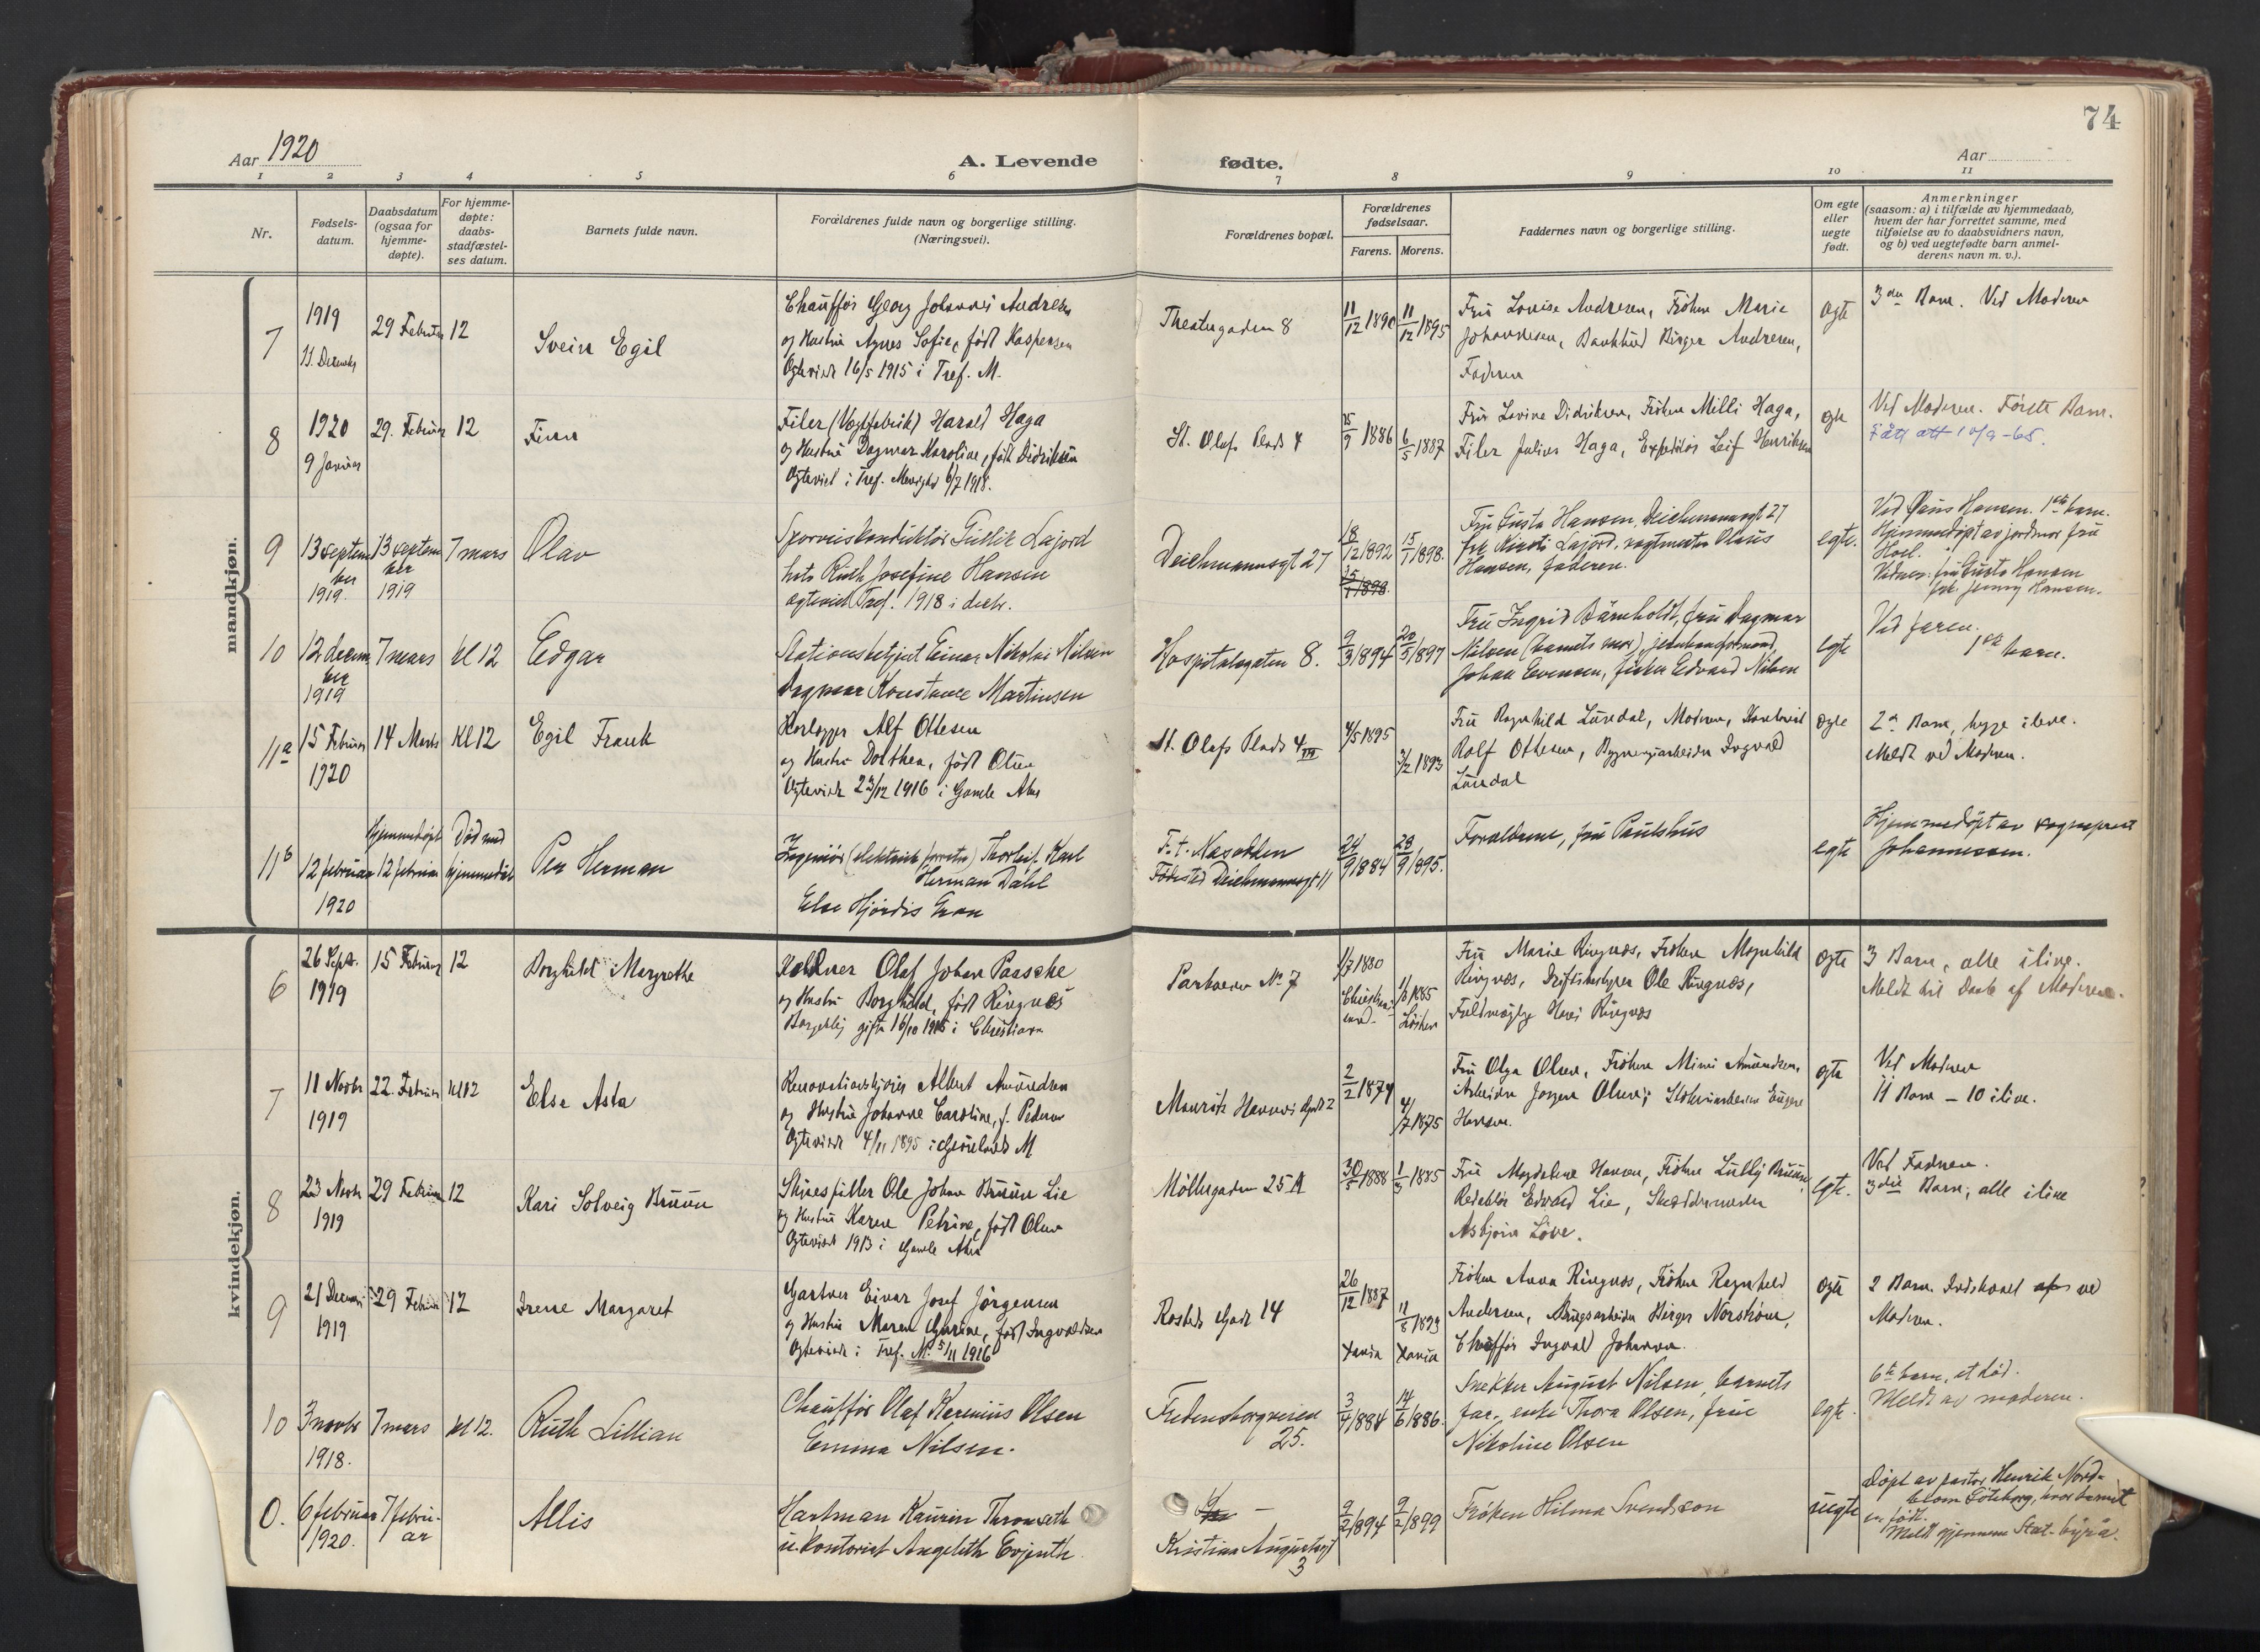 74
Aar 1920
A. Levende
fødte.
Aar
1 2 3 4 5 6 7 8 9 10 11
Nr.
Fødsels-
datum.
Daabsdatum
(ogsaa for
hjemme-
døpte).
For hjemme-
døpte:
daabs-
stadfæstel-
ses datum.
Barnets fulde navn.
Forældrenes fulde navn og borgerlige stilling.
(Næringsvei).
Forældrenes bopæl.
Forældrenes
fødselsaar.
Farens. Morens.
Faddernes navn og borgerlige stilling.
Om egte
eller
uegte
født.
Anmerkninger
(saasom: a) i tilfælde av hjemmedaab,
hvem der har forrettet samme, med
tilføielse av to daabsvidners navn,
og b) ved uegtefødte barn anmel-
derens navn m. v.).
mandkjøn.
7
1919
11. Decemb
29 Februar
12
Svein Egil
Chauffør Georg Johannes Andresen
og Hustru Agnes Sofie, født Kaspersen
Ogteviet 16/5 1915 i Tref. M.
Theatergaden 8
11/12 1890
11/12 1895
Fru Lovise Andresen, Frøken Marie
Johannesen, Birger Andresen,
Faderen
ogte
3die Barn. Ved Moderen
8
1920
9 Januar
29. Februar
12
Finn
Filer (Vægtfabrik) Harald Haga
og Hustru Dagmar Karoline, født Didriksen
Ogteviet i Tref. Menighed 6/7 1918.
St. Olafs Plads 4
15/9 1886
6/5 1887
Fru Lovine Didriksen, Frøken Milli Haga,
Filer Julius Haga, Expeditør Leif Henriksen
ogte
Ved Moderen. Første Barn.
Fått att 10/9-65.
9
13 septem
ber
1919
13 septem
ber
1919
7 mars
Olav
Sporveiskonduktør Gullik Lajord
Ruth Josefine Hansen
egteviet Tref. 1918 i decbr.
Deichmannsgt 27
18/12 1892
15/1 1898.
15/1 1898
Fru Gusta Hansen, Deichmannsgt 27
frk Kirsti Lajord, vagtmester Olaus
Hansen, faderen.
egte.
Ved Olaus Hansen. 1ste barn.
Hjemmedøpt av jordmor fru
Vidner: fru Gusta Hansen
frk. Jenny Hansen.
10
12 decem
ber
1919
7 mars
kl 12
Edgar
Stationsbetjent Einar Nikolai Nilsen
Dagmar Konstanse Martinsen
Hospitalsgaten 8.
9/3 1894
20/5 1897
Fru Ingrid Bärnholdt, fru Dagmar
Nilsen (barnets mor), jernbaneformand
Johan Evensen, fisker Edvard Nilsen
egte
Ved faren.
1ste barn.
11a
15 Februar
1920
14 Marts
Kl 12
Egil Frank
Alf Ottesen
og Hustru Dorthea, født Olsen
Ogteviet 23/12 1916 i Gamle Aker
St. Olafs Plads 4 III
4/5 1895
3/2 1893
Fru Ragnhild Lundal, Moderen,
Rolf Ottesen, Bygningsarbeider Ingvald
Lundal
ogte
2det Barn, begge ilive.
Meldt ved Moderen.
11b
12 februar
1920
Hjemmedøpt
12 februar
Død med
hjemmedåb
Per Herman
Ingeniør (elektrisk forretn) Thorleif Karl
Herman Dahl
Else Hjørdis Gran
F. t. Nesodden
Fødested Deichmannsgt 11
24/9 1884
28/9 1895.
Forældrene, fru Paulshus
egte
Hjemmedøpt av sogneprest
Johannessen.
kvindekjøn.
6
26 Sept.
1919
15 Februar
12
Borghild Margrethe
Kelner Olaf Johan Paasche
og Hustru Borghild, født Ringnæs
Borgerlig gifte 16/10 1915 i Christiania
Parkveien No 7
1/7 1880
1885
Fru Marie Ringnæs, Frøken Magnhild
Ringnæs, Driftsbestyrer Ole Ringnæs,
Fuldmægtig Hans Ringnæs
ogte
3 Barn, alle ilive.
Meldt til Daab af Moderen.
7
11 Novbr
1919
22. Februar
kl 12
Else Asta
Renovationskjører Albert Amundsen
og Hustru Johanne Caroline, f. Pedersen
Ogteviet 4/11 1895 i Grønlands M
Mauritz Hansens Gade 2
2/2 1874
4/7 1875
Fru Olga Olsen, Frøken Mimi Amundsen,
Arbeider Jørgen Olsen, Eugene
Hansen.
ogte
Ved Moderen
11 Barn - 10 ilive.
8
23 Novbr
1919
29 Februar
12
Kari Solveig Bruun
Skuespiller Ole Johan Bruun Lie
og Hustru Karen Petrine, født Olsen
Ogteviet 1913 i Gamle Aker
Møllergaden 25 A
30/5 1888
1/3 1885
Fru Magdalene Hansen, Frøken Lully Bruun,
Redaktør Edvard Lie, Skræddermester
Asbjørn Løve.
egte.
Ved Faderen.
3die Barn, alle ilive
9
21 Decemb
1919
29 Februar
12
Irene Margaret
Gartner Einar Josef Jørgensen
og Hustru Maren Gurine, født Ingvaldsen
Ogteviet i Tref. M. 5/11 1916
Rosteds Gade 14
26/12 1887
Xania
11/8 1893
Xania
Frøken Anna Ringnæs, Frøken Ragnhild
Andersen, Brugsarbeider Birger Norstrøm,
Chauffør Ingvald Johansen.
ogte
2 Barn. Indskrevet af ved
Moderen.
10
3 novbr
1918.
7 mars
kl 12.
Ruth Lillian
Chauffør Olaf Karenius Olsen
Emma Nilsen.
Fredensborgveien
25.
3/4 1884
14/6 1886.
Snekker August Nilsen, barnets
far, enke Thora Olsen, frue
Nikoline Olsen
egte.
6te barn, et død.
Meldt av moderen.
0.
6 februar
1920.
7 febru-
ar
Allis
Hartman Kaurin Thronsæth
u. kontorist Angelith Evjenth
Kristian Augustsgt
3
9/2 1894
9/2 1899
Frøken Hilma Svendsson
uegte
Døpt av pastor Henrik Nord-
blom Göteborg, hvor barnet
er født.
Meldt gjennem Stat. byrå.